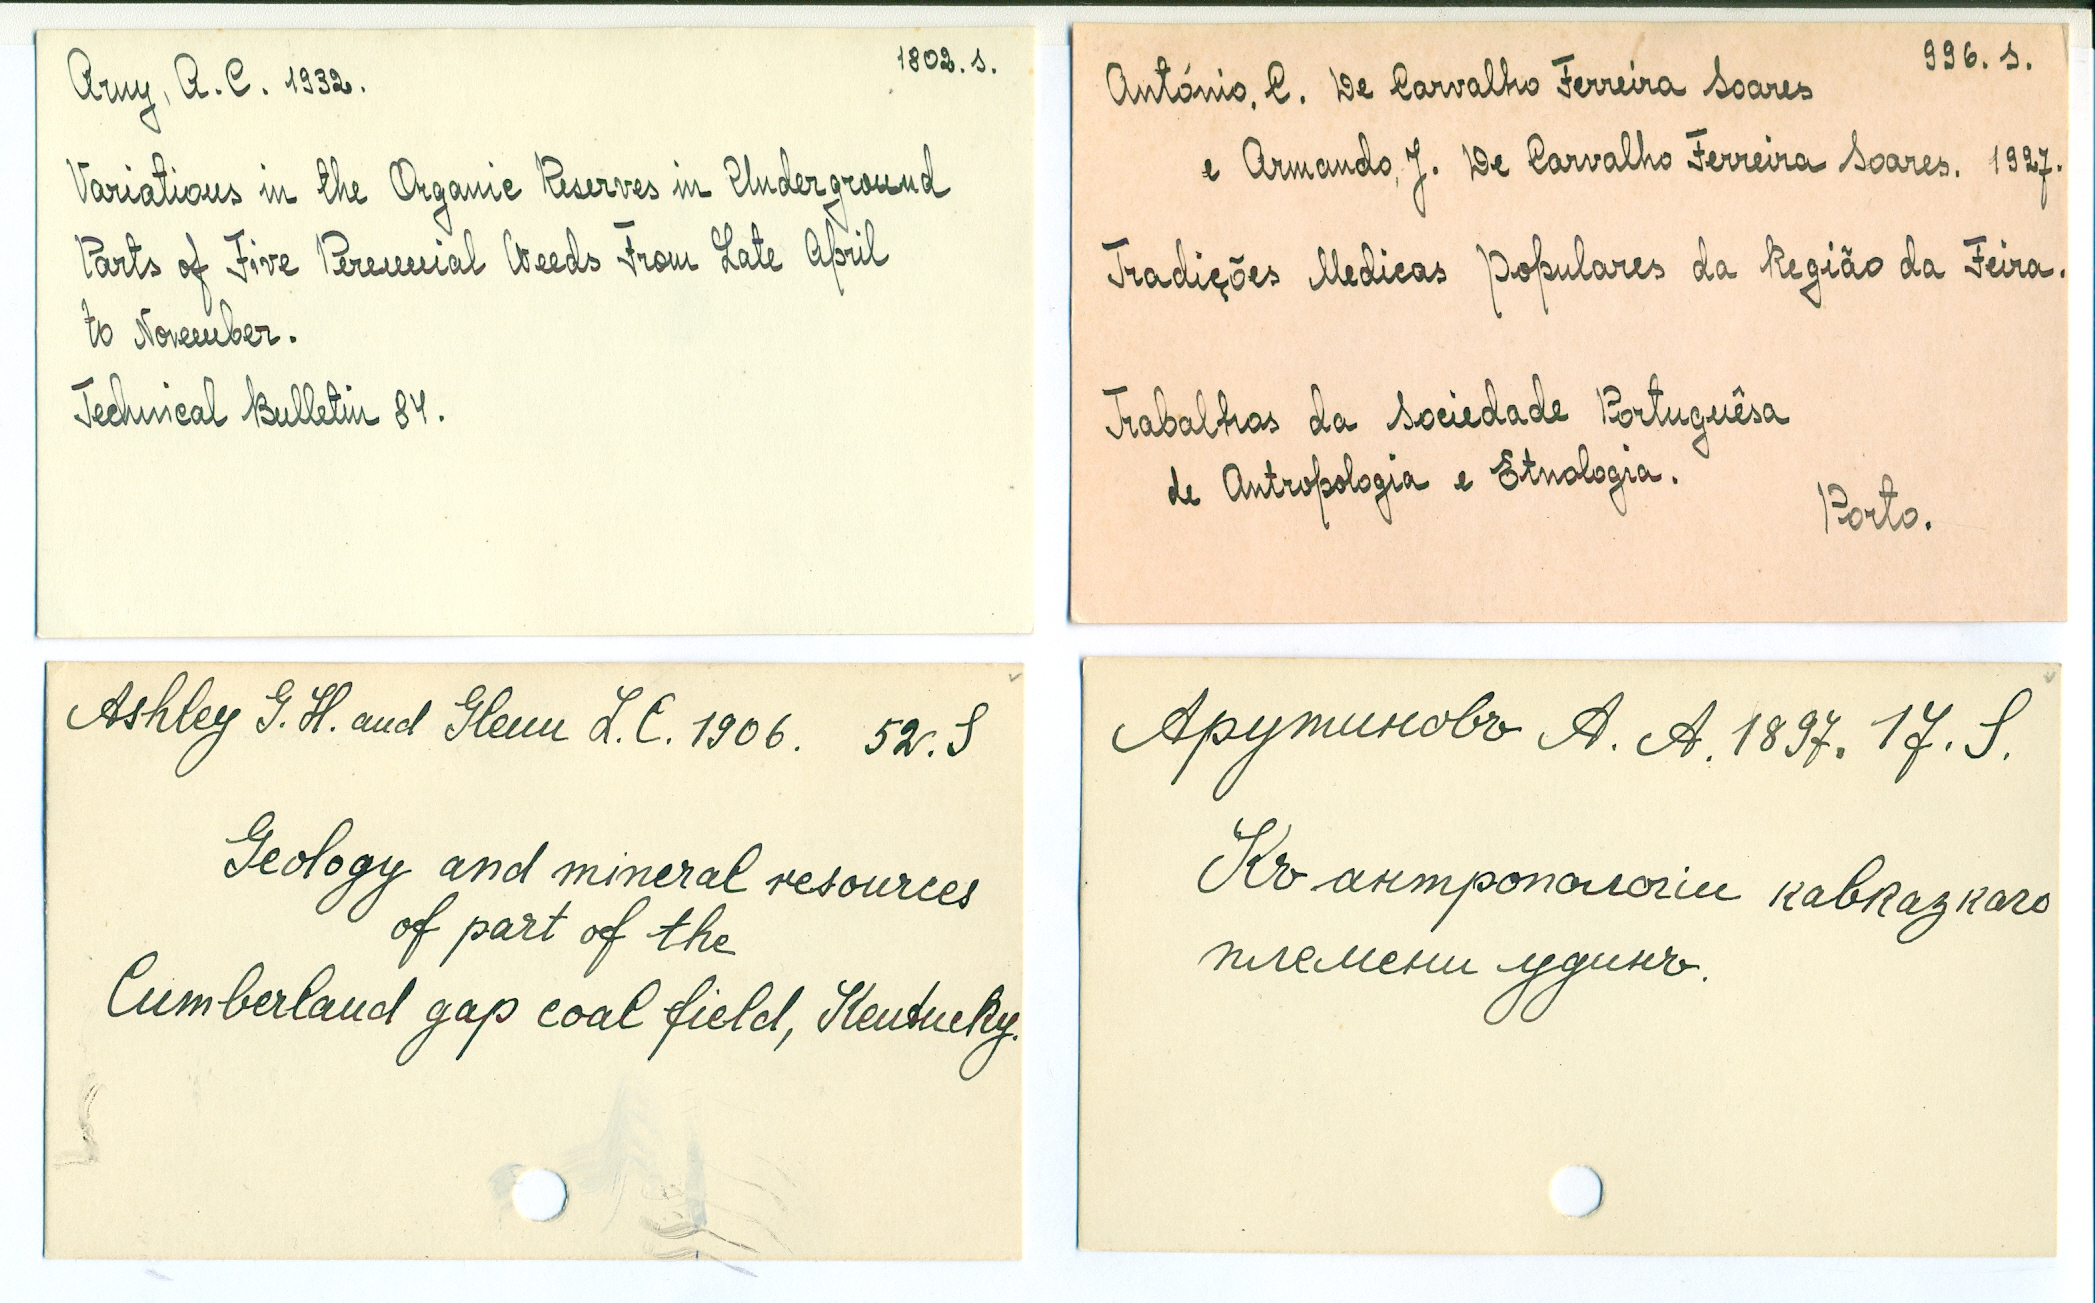 Arny, A. C. 1932. 1802. s.
Variations in the Organic Reserves in Underground
Parts of Five Perennial Weeds From Late April
to November.
Technical Bulletin 84.
António, C. De Carvalho Ferreira Soares 996. s.
e Armando, J. De Carvalho Ferreira Soares. 1927.
Tradições Medicas Populares da Região da Feira.
Trabalhos da Sociedade Portuguêsa
de Antropologia e Etnologia.
Porto.
Ashley G. H. and Glenn L. C. 1906. 52. S
Geology and mineral resources
of part of the
Cumberland gap coal field, Kentucky.
Арутиновъ А. А. 1897. 17. S.
Къ антропологіи кавказкаго
племени удинъ.